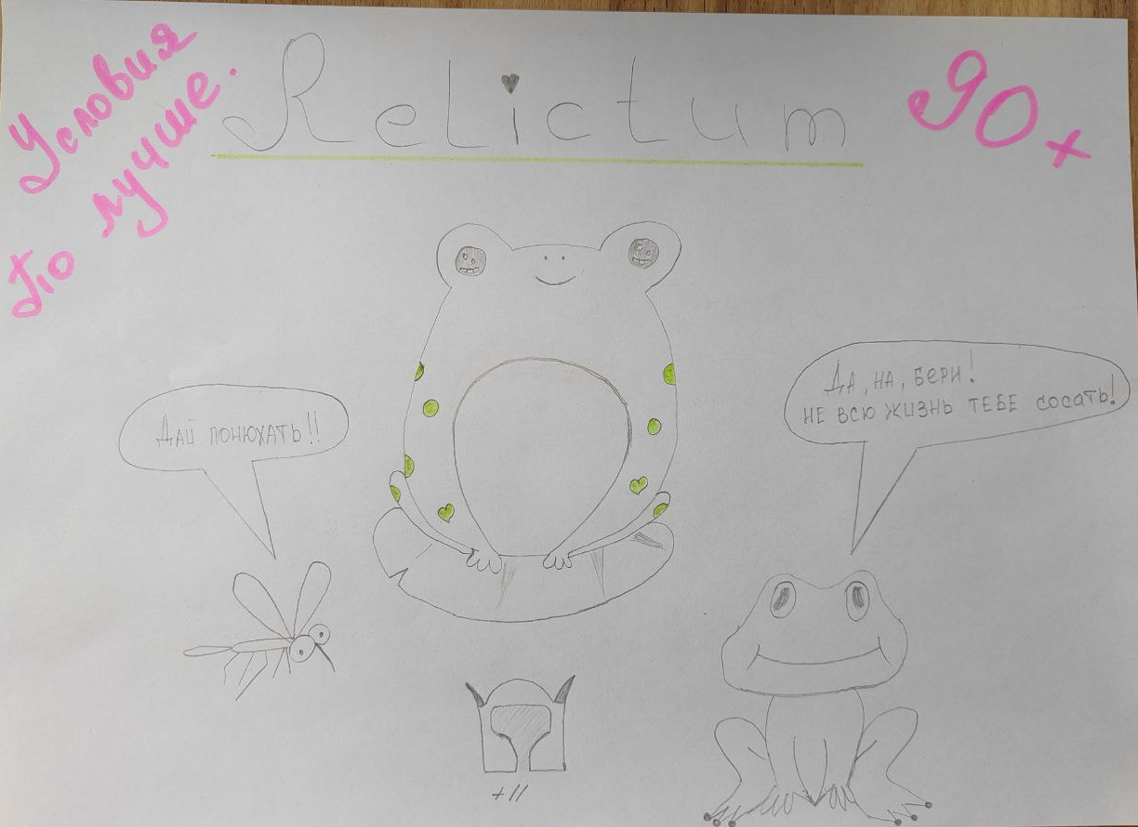 Условия
По лучше.
Relictum
90+
Дай понюхать!!
Да, на, бери!
не всю жизнь тебе сосать!
+11